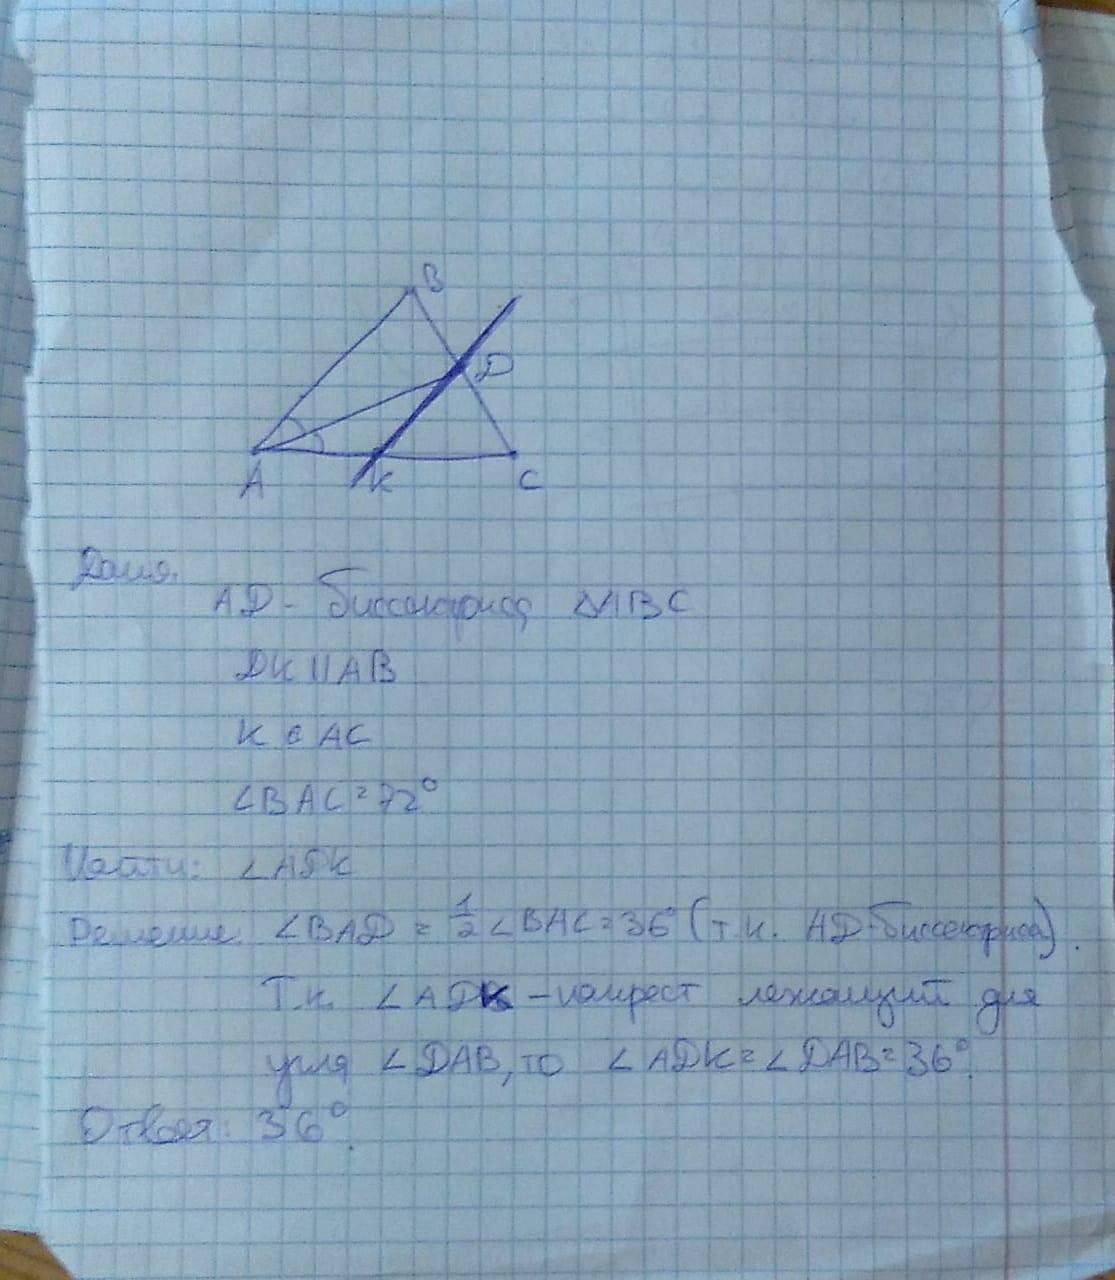 B
D
A
K
C
Дано:
AD - биссектриса △ABC
DK || AB
K ∈ AC
∠BAC = 72°
Найти: ∠ADK
Решение: ∠BAD = 1/2 ∠BAC = 36° (т.к. AD-биссектриса).
Т.к. ∠ADK - накрест лежащий для
угла ∠DAB, то ∠ADK = ∠DAB = 36°.
Ответ: 36°.